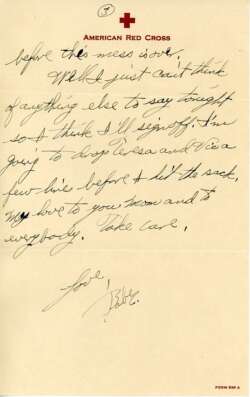 AMERICAN RED CROSS
before this mess is over.
Well I just can't think
of anything else to say tonight
so I think I'll sign off. I'm
going to drop Teresa and Via a
few lines before I hit the sack.
My love to you Mom and to
everybody. Take care.
Love,
FORM 539 A